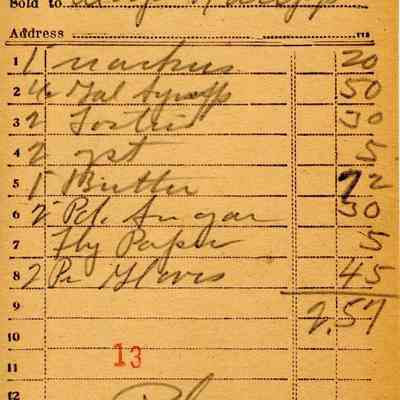 Sold to
Address
1 1 20
2 Gal Syrup 50
3 2 30
4 2 yst 5
5 1 Butter 72
6 2 Pd. Sugar 30
7 Fly Paper 5
8 2 Pr Gloves 45
9 2.57
10
11 13
12